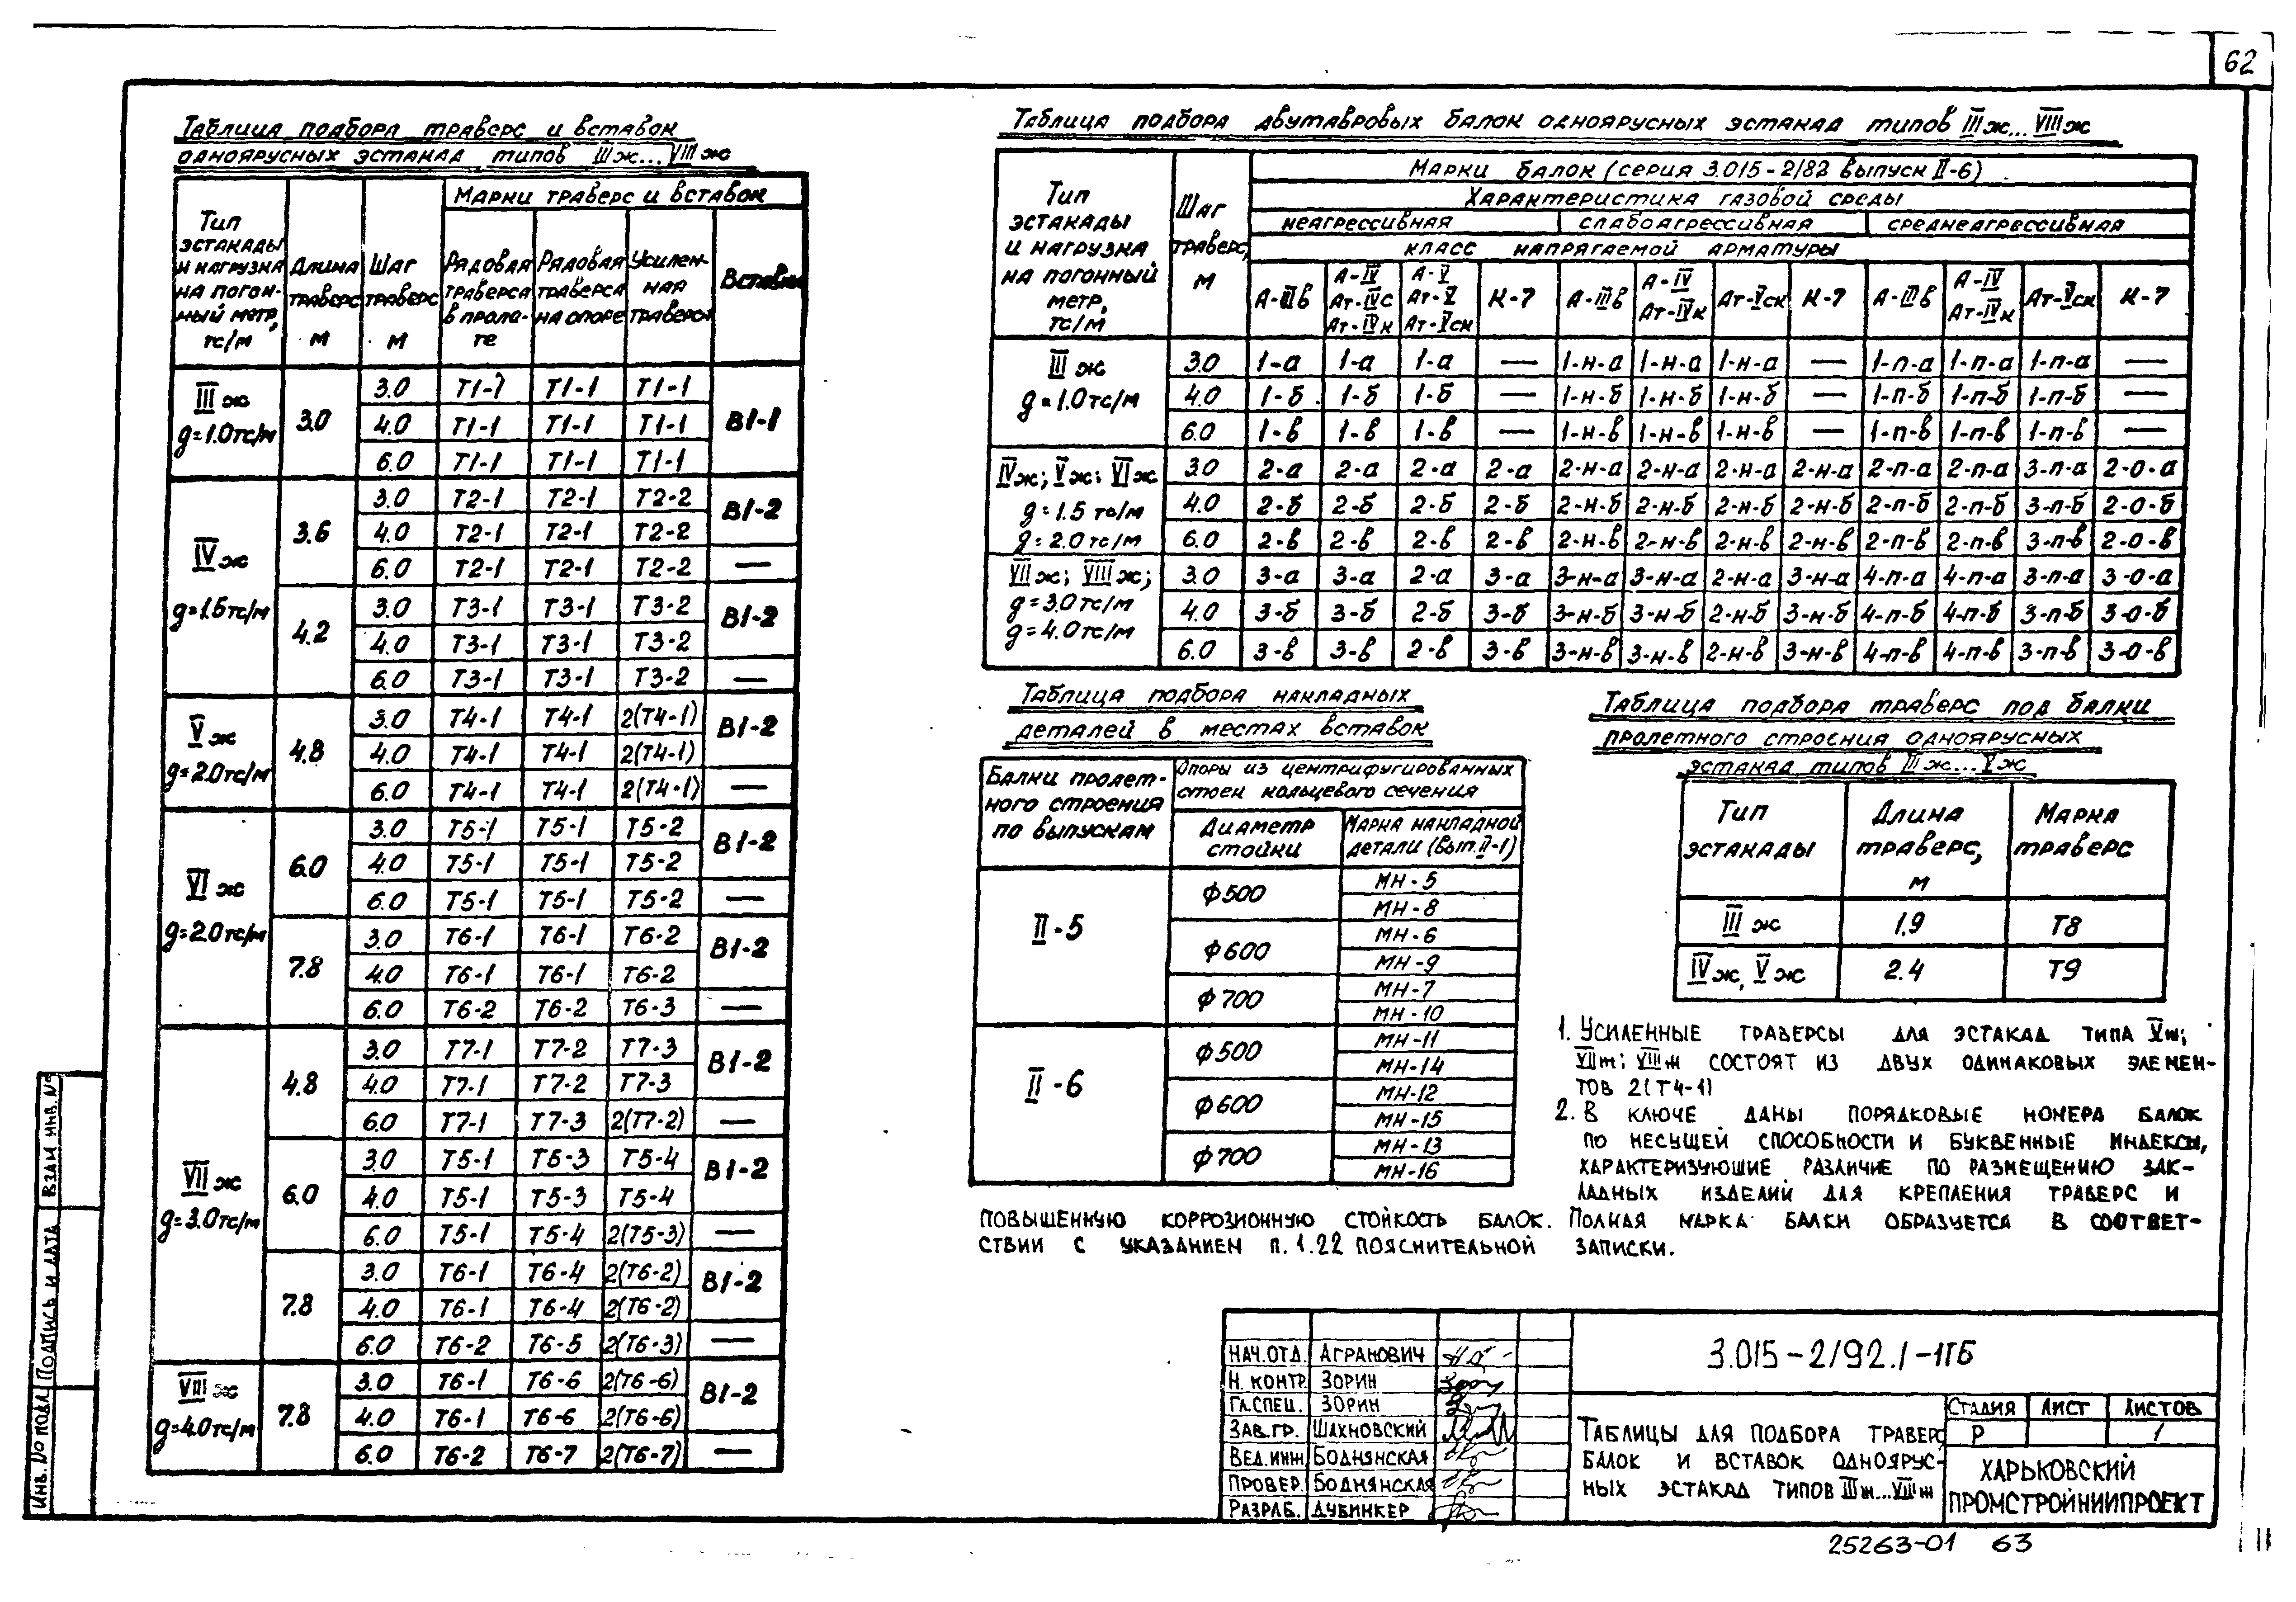 62
Таблица подбора траверс и вставок
одноярусных эстакад типов III ж...VIII ж
Тип эстакады и нагрузка на погонный метр, тс/м | Длина траверс м | Шаг траверс м | Марки траверс и вставок
Рядовая траверса в пролете | Рядовая траверса на опоре | Усиленная траверса | Вставки
III ж g=1.0тс/м | 3.0 | 3.0 | Т1-1 | Т1-1 | Т1-1 | В1-1
4.0 | Т1-1 | Т1-1 | Т1-1
6.0 | Т1-1 | Т1-1 | Т1-1
IV ж g=1.5тс/м | 3.6 | 3.0 | Т2-1 | Т2-1 | Т2-2 | В1-2
4.0 | Т2-1 | Т2-1 | Т2-2
6.0 | Т2-1 | Т2-1 | Т2-2 | —
4.2 | 3.0 | Т3-1 | Т3-1 | Т3-2 | В1-2
4.0 | Т3-1 | Т3-1 | Т3-2
6.0 | Т3-1 | Т3-1 | Т3-2 | —
V ж g=2.0тс/м | 4.8 | 3.0 | Т4-1 | Т4-1 | 2(Т4-1) | В1-2
4.0 | Т4-1 | Т4-1 | 2(Т4-1)
6.0 | Т4-1 | Т4-1 | 2(Т4-1) | —
VI ж g=2.0тс/м | 6.0 | 3.0 | Т5-1 | Т5-1 | Т5-2 | В1-2
4.0 | Т5-1 | Т5-1 | Т5-2
6.0 | Т5-1 | Т5-1 | Т5-2 | —
7.8 | 3.0 | Т6-1 | Т6-1 | Т6-2 | В1-2
4.0 | Т6-1 | Т6-1 | Т6-2
6.0 | Т6-2 | Т6-2 | Т6-3 | —
VII ж g=3.0тс/м | 4.8 | 3.0 | Т7-1 | Т7-2 | Т7-3 | В1-2
4.0 | Т7-1 | Т7-2 | Т7-3
6.0 | Т7-1 | Т7-3 | 2(Т7-2) | —
6.0 | 3.0 | Т5-1 | Т5-3 | Т5-4 | В1-2
4.0 | Т5-1 | Т5-3 | Т5-4
6.0 | Т5-1 | Т5-4 | 2(Т5-3) | —
7.8 | 3.0 | Т6-1 | Т6-4 | 2(Т6-2) | В1-2
4.0 | Т6-1 | Т6-4 | 2(Т6-2)
6.0 | Т6-2 | Т6-5 | 2(Т6-3) | —
VIII ж g=4.0тс/м | 7.8 | 3.0 | Т6-1 | Т6-6 | 2(Т6-6) | В1-2
4.0 | Т6-1 | Т6-6 | 2(Т6-6)
6.0 | Т6-2 | Т6-7 | 2(Т6-7) | —
Таблица подбора двутавровых балок одноярусных эстакад типов III ж...VIII ж
Тип эстакады и нагрузка на погонный метр, тс/м | Шаг траверс, м | Марки балок (серия 3.015-2/82 выпуск II-6)
Характеристика газовой среды
неагрессивная | слабоагрессивная | среднеагрессивная
класс напрягаемой арматуры
А-IIIв | А-IV Ат-IVс Ат-IVк | А-V Ат-V Ат-Vск | К-7 | А-IIIв | А-IV Ат-IVк | Ат-Vск | К-7 | А-IIIв | А-IV Ат-IVк | Ат-Vск | К-7
III ж g=1.0тс/м | 3.0 | 1-а | 1-а | 1-а | — | 1-н-а | 1-н-а | 1-н-а | — | 1-п-а | 1-п-а | 1-п-а | —
4.0 | 1-б | 1-б | 1-б | — | 1-н-б | 1-н-б | 1-н-б | — | 1-п-б | 1-п-б | 1-п-б | —
6.0 | 1-в | 1-в | 1-в | — | 1-н-в | 1-н-в | 1-н-в | — | 1-п-в | 1-п-в | 1-п-в | —
IV ж; V ж; VI ж g=1.5 тс/м g=2.0тс/м | 3.0 | 2-а | 2-а | 2-а | 2-а | 2-н-а | 2-н-а | 2-н-а | 2-н-а | 2-п-а | 2-п-а | 3-п-а | 2-о-а
4.0 | 2-б | 2-б | 2-б | 2-б | 2-н-б | 2-н-б | 2-н-б | 2-н-б | 2-п-б | 2-п-б | 3-п-б | 2-о-б
6.0 | 2-в | 2-в | 2-в | 2-в | 2-н-в | 2-н-в | 2-н-в | 2-н-в | 2-п-в | 2-п-в | 3-п-в | 2-о-в
VII ж; VIII ж; g=3.0тс/м g=4.0тс/м | 3.0 | 3-а | 3-а | 2-а | 3-а | 3-н-а | 3-н-а | 2-н-а | 3-н-а | 4-п-а | 4-п-а | 3-п-а | 3-о-а
4.0 | 3-б | 3-б | 2-б | 3-б | 3-н-б | 3-н-б | 2-н-б | 3-н-б | 4-п-б | 4-п-б | 3-п-б | 3-о-б
6.0 | 3-в | 3-в | 2-в | 3-в | 3-н-в | 3-н-в | 2-н-в | 3-н-в | 4-п-в | 4-п-в | 3-п-в | 3-о-в
Таблица подбора накладных
деталей в местах вставок
Балки пролетного строения по выпускам | Опоры из центрифугированных стоек кольцевого сечения
Диаметр стойки | Марка накладной детали (вып. II-1)
II-5 | ф500 | МН-5
МН-8
ф600 | МН-6
МН-9
ф700 | МН-7
МН-10
II-6 | ф500 | МН-11
МН-14
ф600 | МН-12
МН-15
ф700 | МН-13
МН-16
Таблица подбора траверс под балки
пролетного строения одноярусных
эстакад типов III ж...V ж
Тип эстакады | Длина траверс, м | Марка траверс
III ж | 1.9 | Т8
IV ж, V ж | 2.4 | Т9
1. Усиленные траверсы для эстакад типа V ж;
VII ж; VIII ж состоят из двух одинаковых элемен-
тов 2(Т4-1)
2. В ключе даны порядковые номера балок
по несущей способности и буквенные индексы,
характеризующие различие по размещению зак-
ладных изделий для крепления траверс и
повышенную коррозионную стойкость балок. Полная марка балки образуется в соответ-
ствии с указанием п. 1.22 пояснительной записки.
Нач.отд. Агранович
Н. контр. Зорин
Гл.спец. Зорин
Зав.гр. Шахновский
Вед.инж. Боднянская
Провер. Боднянская
Разраб. Дубинкер
3.015-2/92.1-1ПБ
Таблицы для подбора траверс
балок и вставок одноярус-
ных эстакад типов III ж...VIII ж
Стадия | Лист | Листов
Р | | 1
Харьковский
Промстройниипроект
25263-01 63
Взам инв. №
Подпись и дата
Инв. № подл.